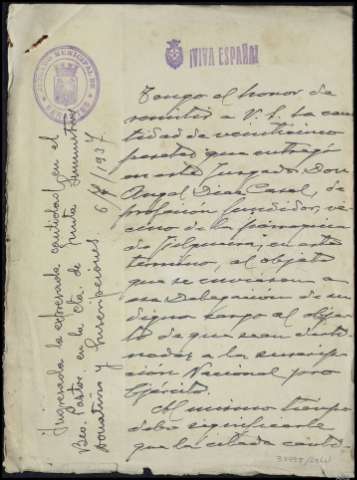 JUZGADO MUNICIPAL DE
¡VIVA ESPAÑA!
Tengo el honor de
remitir a V. S. la can-
tidad de veinticinco
pesetas que entregó
en este Juzgado Don
Angel Diaz Casal, de
profesión fundidor, ve-
cino de la parroquia
de en este
termino, al objeto
que se envíasen a
esa Delegacion de su
digno cargo al obje-
to de que sean desti-
nadas a la suscrip-
ción Nacional pro
Ejército.
Al mismo tiempo
debo significarle
que la citada canti-
Ingresada la expresada cantidad en el
Bco. Pastor en la Cta. de Junta Suministros
Donativos y Suscripciones 6/7/1937